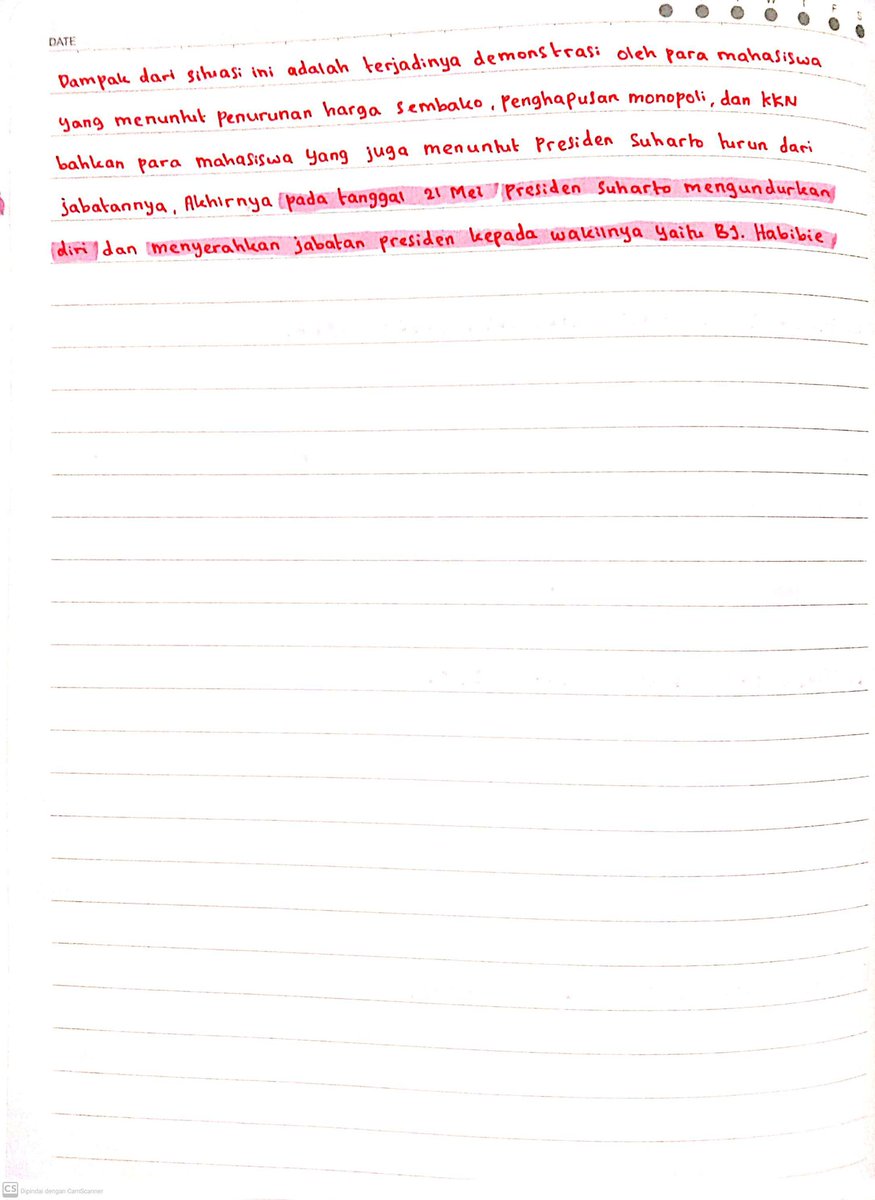 W T F S
DATE
Dampak dari situasi ini adalah terjadinya demonstrasi oleh para mahasiswa
yang menuntut penurunan harga sembako, penghapusan monopoli, dan KKN
bahkan para mahasiswa yang juga menuntut Presiden Suharto turun dari
jabatannya, Akhirnya pada tanggal 21 Mei Presiden Suharto mengundurkan
diri dan menyerahkan jabatan presiden kepada wakilnya yaitu BJ. Habibie
CS Dipindai dengan CamScanner